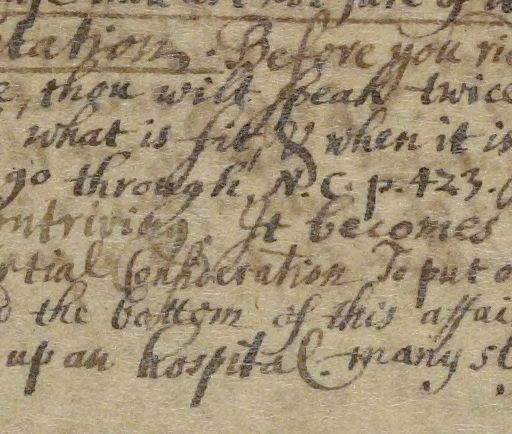 tation. Before you
, thou wilt speak twice
what is fit & when it is
go through, N. C. p. 423.
ntriving. It becomes
rtial Consideration To put
the bottom of this affai
up an hospital. many